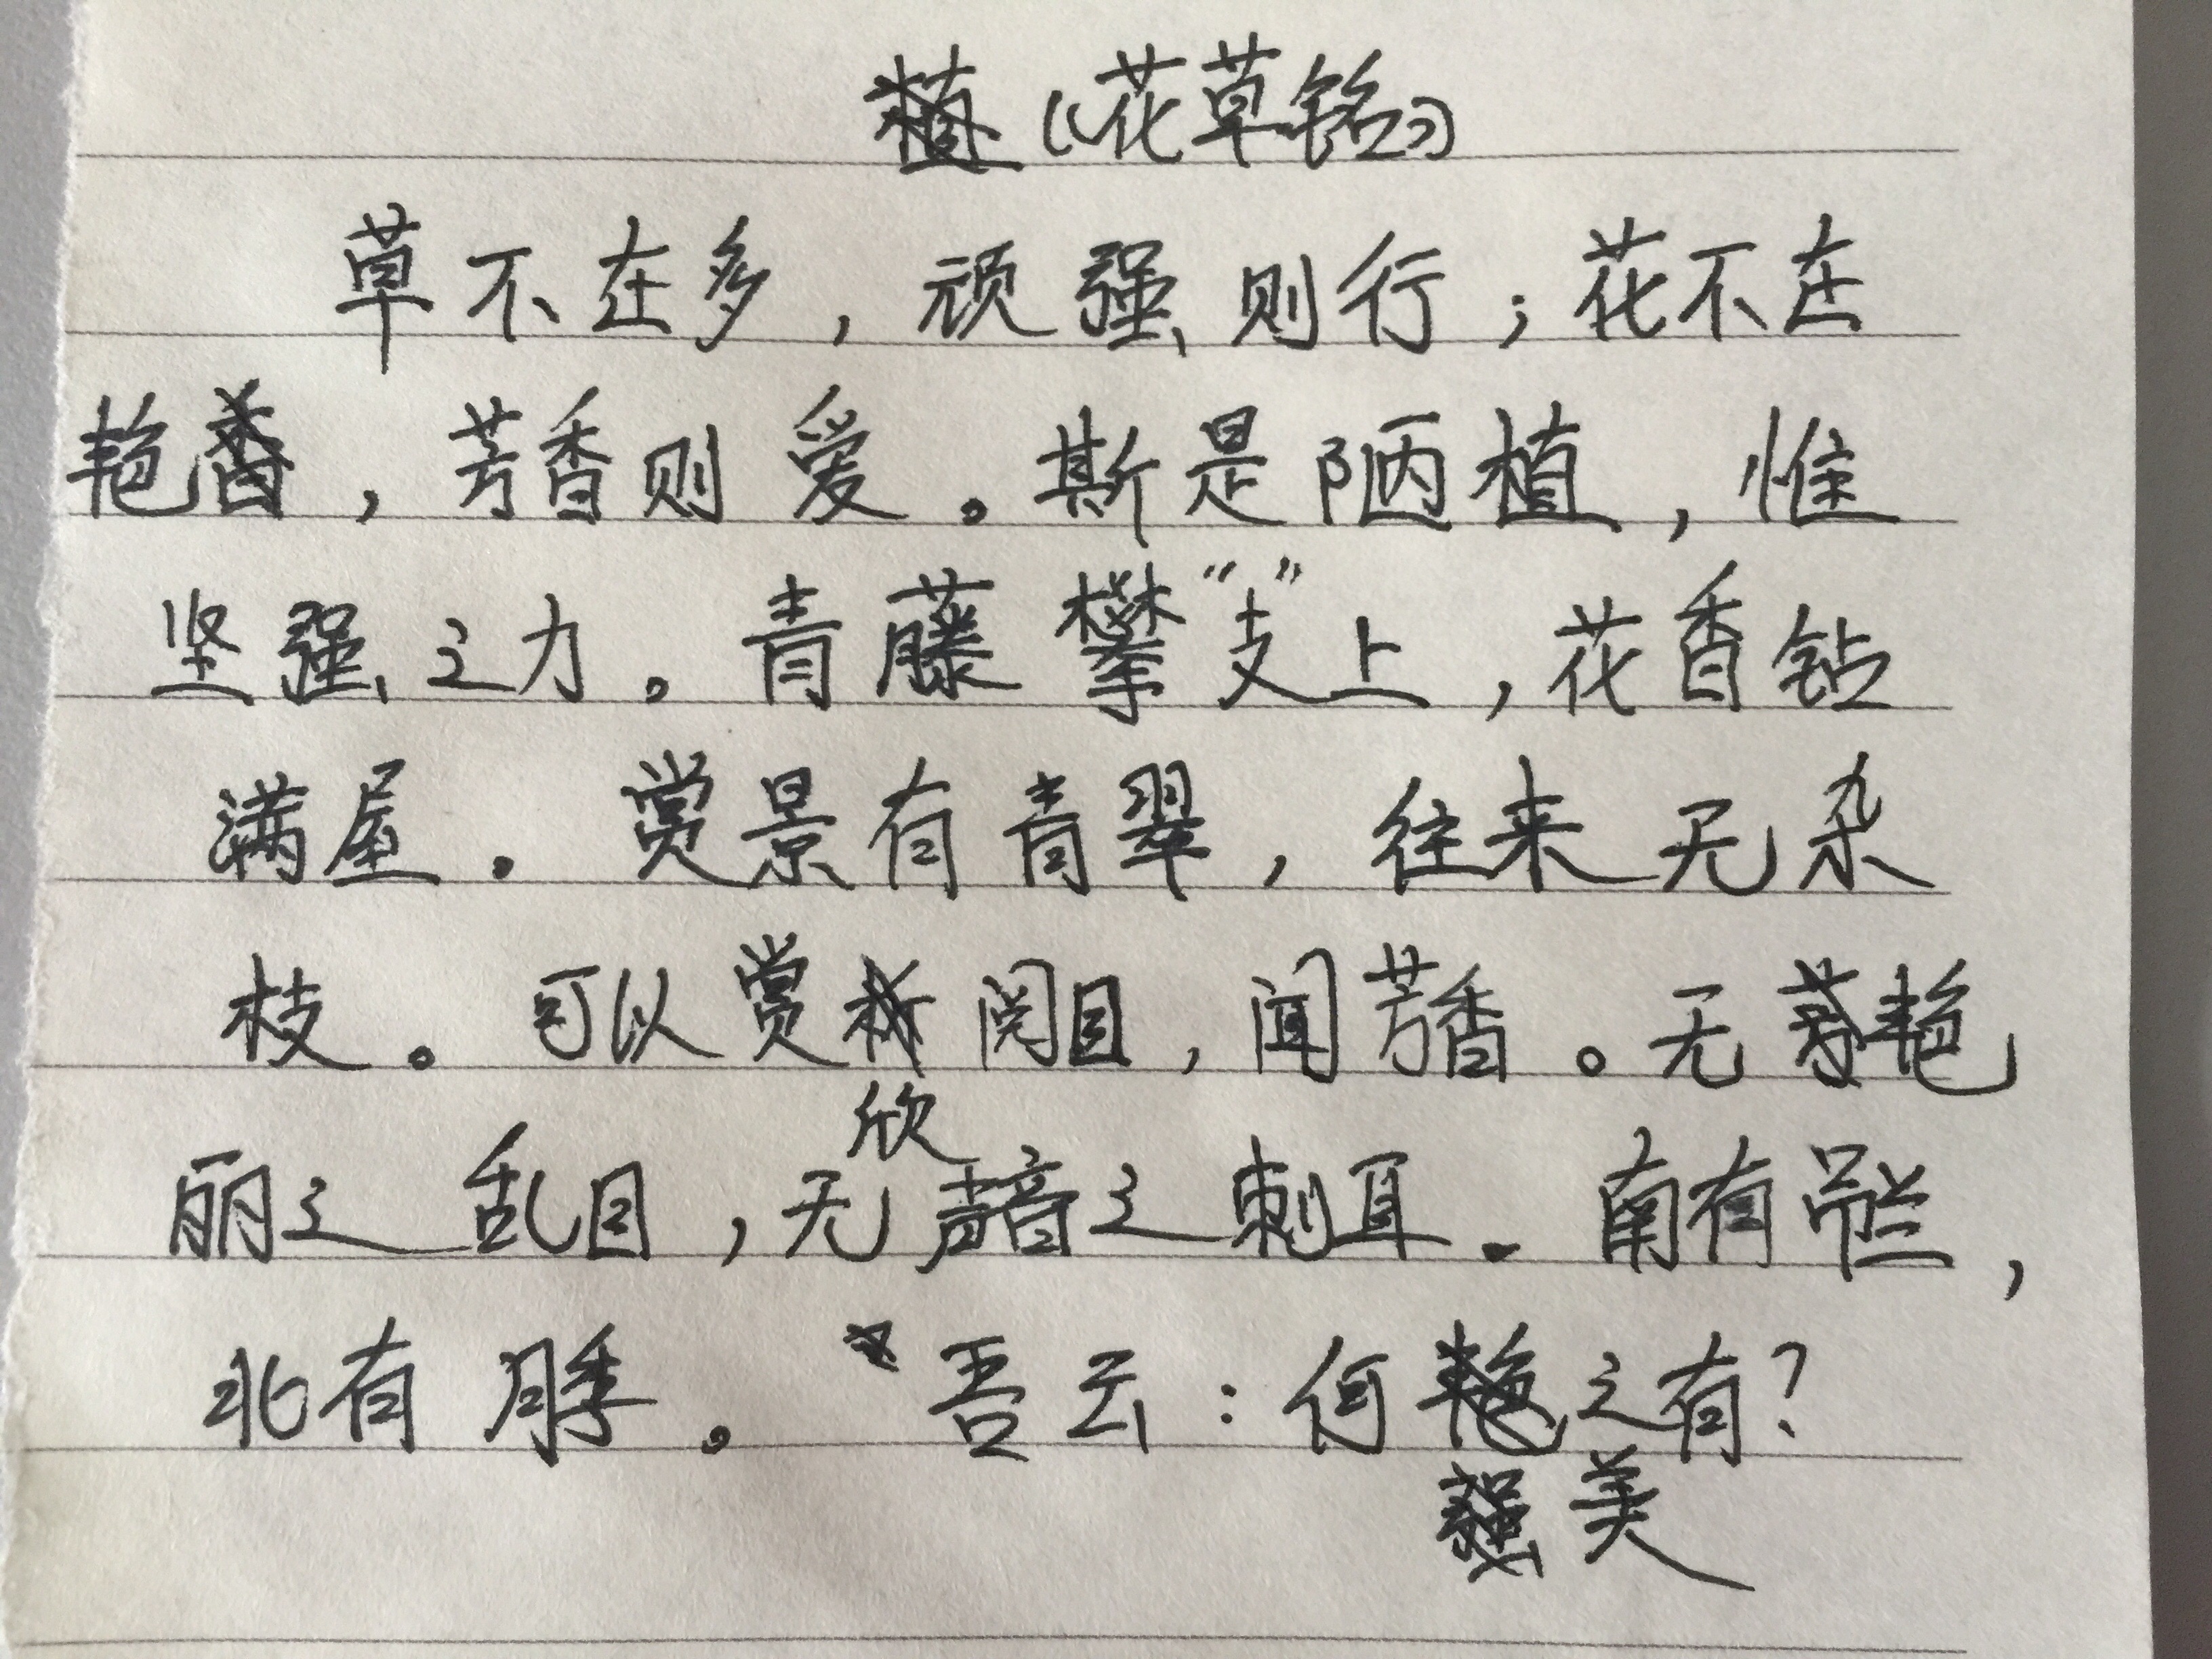 《花草铭》
草不在多，顽强则行；花不在
艳，芳香则爱。斯是陋植，惟
坚强之力。青藤攀“支”上，花香钻
满屋。赏景有青翠，往来无杂
枝。可以赏阅目，闻芳香。无艳
欣
丽之乱目，无声音之刺耳。南有吊兰，
北有月季。吾云：何之有？
美